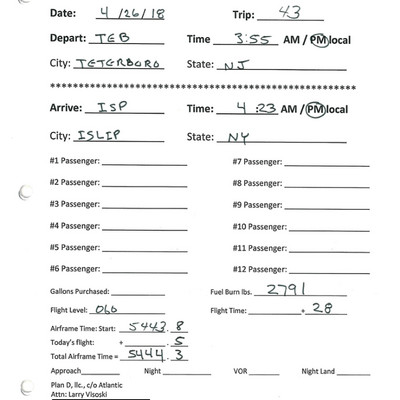 Date: 4/26/18 Trip: 43
Depart: TEB Time 3:55 AM / PM local
City: TETERBORO State: NJ
************************************************************
Arrive: ISP Time: 4:23 AM / PM local
City: ISLIP State: NY
#1 Passenger: #7 Passenger:
#2 Passenger: #8 Passenger:
#3 Passenger: #9 Passenger:
#4 Passenger: #10 Passenger:
#5 Passenger: #11 Passenger:
#6 Passenger: #12 Passenger:
Gallons Purchased: Fuel Burn lbs. 2791
Flight Level: 060 Flight Time: . 28
Airframe Time: Start: 5443.8
Today's flight: + .5
Total Airframe Time = 5444.3
Approach Night VOR Night Land
Plan D, llc., c/o Atlantic
Attn: Larry Visoski